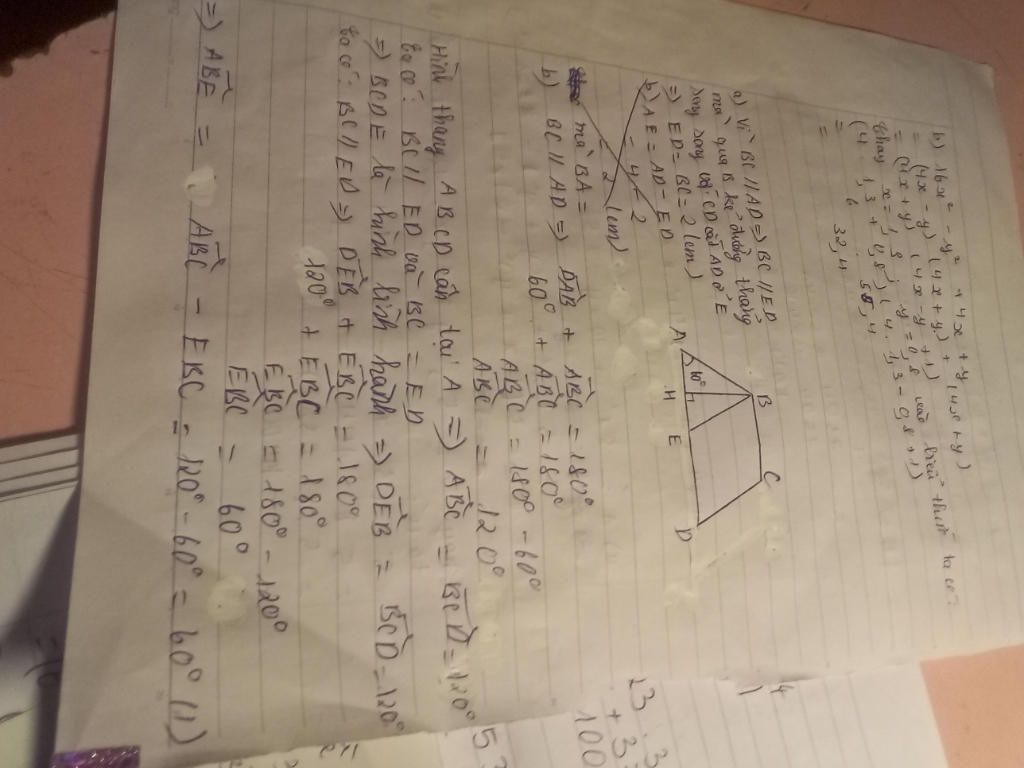 b) 16x² - y² + 4x + y
= (4x - y) (4x + y) + (4x + y)
= (4x + y) (4x - y + 1)
Thay x = 1,3 y = 0,8 vào biểu thức ta có:
(4 . 1,3 + 0,8) (4 . 1,3 - 0,8 + 1)
= 6 . 5,4
= 32,4
a) Vì BC // AD => BC // ED
mà qua B kẻ đường thẳng
song song với CD cắt AD ở E
=> ED = BC = 2 (cm)
b) AE = AD - ED
= 4 - 2
= 2 (cm)
mà BA =
A
B
C
D
H
E
60°
b) BC // AD => DAB + ABC = 180°
60° + ABC = 180°
ABC = 180° - 60°
ABC = 120°
Hình thang ABCD cân tại A => ABC = BCD = 120°
Ta có: BC // ED và BC = ED
=> BCDE là hình bình hành => DEB = BCD = 120°
Ta có: BC // ED => DEB + EBC = 180°
120° + EBC = 180°
EBC = 180° - 120°
EBC = 60°
=> ABE = ABC - EBC = 120° - 60° = 60° (1)